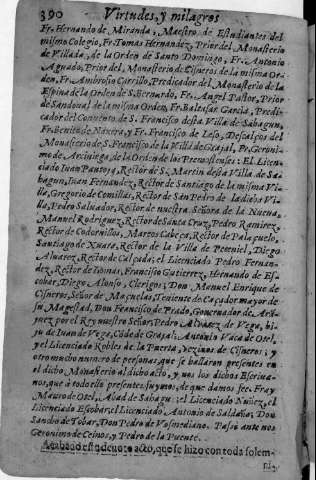 390 Virtudes, y milagros
Fr. Hernando de Miranda, Maestro de Estudiantes del
mismo Colegio, Fr. Tomas Hernandez, Prior del Monasterio
de Villada, de la Orden de Santo Domingo, Fr. Antonio
Aguado, Prior del Monasterio de Cisneros de la misma Or-
den, Fr. Ambrosio Carrillo, Predicador del Monasterio de la
Espina de la Orden de S. Bernardo, Fr. Angel Pastor, Prior
de Sandoual de la misma Orden, Fr. Baltasar Garcia, Predi-
cador del Conuento de S. Francisco desta Villa de Sahagun,
Fr. Benito de Naxera, y Fr. Francisco de Leso, Descalços del
Monasterio de S. Francisco de la Villa de Grajal, Fr. Geroni-
mo de Arciniega, de la Orden de los : El Licen-
ciado Iuan Pantoya, Rector de S. Martin desta Villa de Sa-
hagun, Iuan Fernandez, Rector de Santiago de la misma Vi-
lla, Gregorio de Comillas, Rector de San Pedro de la dicha Vi-
lla, Pedro Saluador, Rector de nuestra Señora de la Nueua,
Manuel Rodriguez, Rector de Santa Cruz, Pedro Ramirez,
Rector de Codornillos, Marcos Cabeça, Rector de Palaçuelo,
Santiago de Xuara, Rector de la Villa de , Diego
Aluarez, Rector de Calçada; el Licenciado Pedro Fernan-
dez, Rector de Iomas, Francisco Gutierrez, Hernando de Es-
cobar, Diego Alonso, Clerigos; Don Manuel Enrique de
Cisneros, Señor de Maçuelas, Teniente de Caçador mayor de
su Magestad, Don Francisco de Prado, Gouernador de Aran-
juez por el Rey nuestro Señor; Pedro Aluarez de Vega, hi-
jo de Iuan de Vega, Cōde de Grajal; Antonio Vaca de Otel,
y el Licenciado Robles de la Puerta, vezinos de Cisneros; y
otro mucho numero de personas, que se hallaron presentes en
el dicho Monasterio al dicho acto, y nos los dichos Escriua-
nos, que à todo ello presentes fuymos, de que damos fee. Fray
Mauro de Otel, Abad de Sahagū: el Licenciado Nuñez, el
Licenciado Escobar: el Licenciado Antonio de Saldaña, Don
Sancho de Tobar, Don Pedro de Vosmediano. Passò ante nos
Geronimo de Ceinos, y Pedro de la Puente.
Acabado este deuoto acto, que se hizo con toda solem-